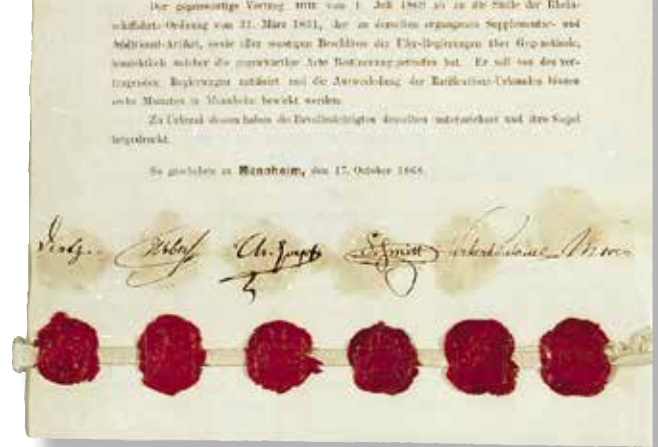 Der gegenwärtige Vertrag tritt vom 1. Juli 1869 ab an die Stelle der Rhein-
schiffahrts-Ordnung vom 31. März 1831, der zu derselben ergangenen Supplementar- und
Additional-Artikel, sowie aller sonstigen Beschlüsse der Ufer-Regierungen über Gegenstände,
hinsichtlich welcher die gegenwärtige Acte Bestimmung getroffen hat. Er soll von den ver-
tragenden Regierungen ratificirt und die Auswechslung der Ratifications-Urkunden binnen
sechs Monaten in Mannheim bewirkt werden.
Zu Urkund dessen haben die Bevollmächtigten denselben unterzeichnet und ihre Siegel
beigedruckt.
So geschehen zu Mannheim, den 17. October 1868.
Dietz. Schmitt